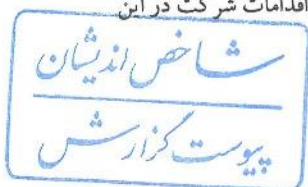 اقدامات شرکت در این
شاخص اندیشان
پیوست گزارش